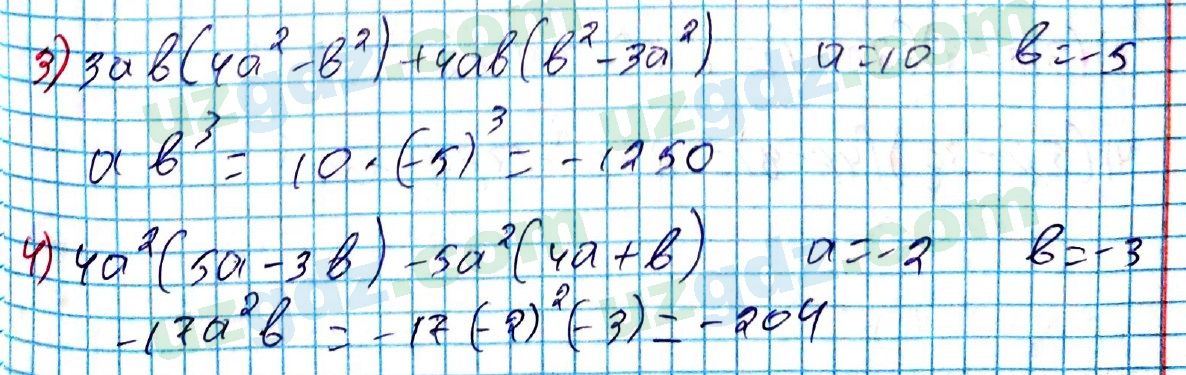 3) 3ab(4a² - b²) + 4ab(b² - 3a²) a=10 b=-5
ab³ = 10 · (-5)³ = -1250
4) 4a²(5a - 3b) - 5a²(4a + b) a=-2 b=-3
-17a²b = -17(-2)²(-3) = -204
uzgdz.com uzgdz.com
uzgdz.com uzgdz.com